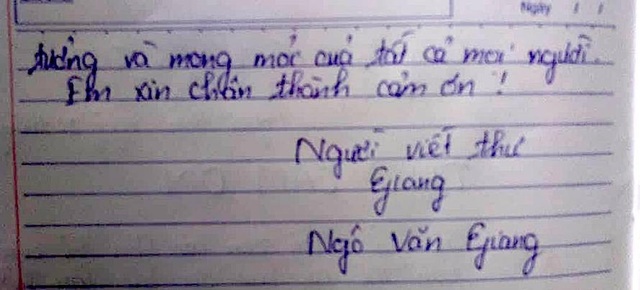 Ngày / /
tưởng và mong mỏi của tất cả mọi người.
Em xin chân thành cảm ơn !
Người viết thư
Giang
Ngô Văn Giang